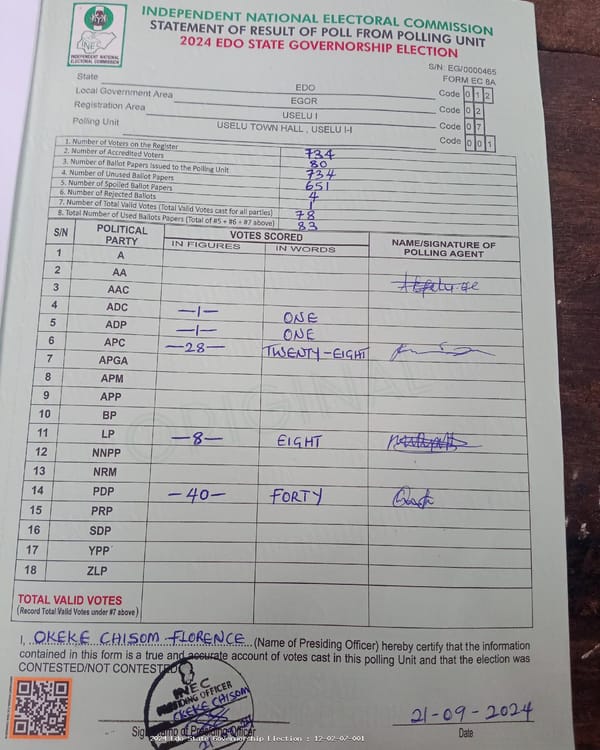 INDEPENDENT NATIONAL ELECTORAL COMMISSION
STATEMENT OF RESULT OF POLL FROM POLLING UNIT
2024 EDO STATE GOVERNORSHIP ELECTION
INEC
INDEPENDENT NATIONAL ELECTORAL COMMISSION
S/N: EG/0000465
FORM EC 8A
State EDO Code 0 1 2
Local Government Area EGOR Code 0 2
Registration Area USELU I Code 0 7
Polling Unit USELU TOWN HALL , USELU I-I Code 0 0 1
1. Number of Voters on the Register 734
2. Number of Accredited Voters 80
3. Number of Ballot Papers Issued to the Polling Unit 734
4. Number of Unused Ballot Papers 651
5. Number of Spoiled Ballot Papers 4
6. Number of Rejected Ballots 1
7. Number of Total Valid Votes (Total Valid Votes cast for all parties) 78
8. Total Number of Used Ballots Papers (Total of #5 + #6 + #7 above) 83
S/N POLITICAL PARTY VOTES SCORED NAME/SIGNATURE OF POLLING AGENT
IN FIGURES IN WORDS
1 A
2 AA
3 AAC
4 ADC -1- ONE
5 ADP -1- ONE
6 APC -28- TWENTY-EIGHT
7 APGA
8 APM
9 APP
10 BP
11 LP -8- EIGHT
12 NNPP
13 NRM
14 PDP -40- FORTY
15 PRP
16 SDP
17 YPP
18 ZLP
ORIGINAL
TOTAL VALID VOTES
(Record Total Valid Votes under #7 above)
I, OKEKE CHISOM FLORENCE (Name of Presiding Officer) hereby certify that the information
contained in this form is a true and accurate account of votes cast in this polling Unit and that the election was
CONTESTED/NOT CONTESTED
INEC
PRESIDING OFFICER
OKEKE CHISOM
21-09-2024
Date
2024 Edo State Governorship Election : 12-02-07-001